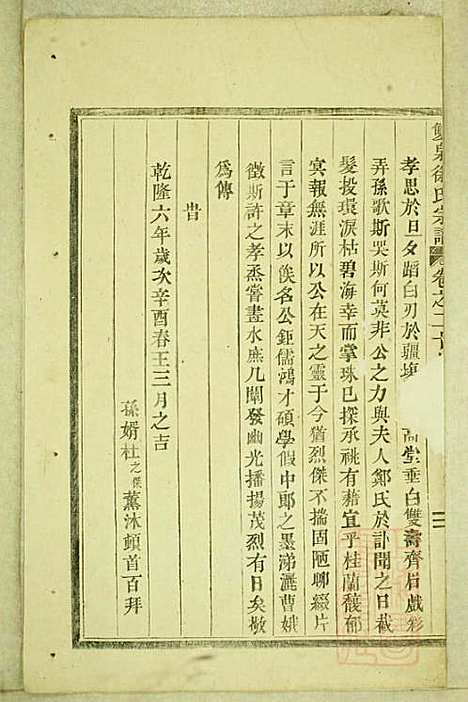 雙泉徐氏宗譜 卷之二
孝思於旦夕蹈白刃於疆場 高堂垂白雙壽齊眉戲彩
弄孫歌斯哭斯何莫非公之力與夫人鄭氏於訃聞之日截
髮投環淚枯碧海幸而掌珠已探承祧有藉宜乎桂蘭馥郁
冥報無涯所以公在天之靈于今猶烈傑不揣固陋聊綴片
言于章末以俟名公鉅儒鴻才碩學假中郎之墨涕灑曹娥
徵斯許之孝烝嘗晝水庶几闡發幽光播揚茂烈有日矣敬
為傳
旹
乾隆六年歲次辛酉春王三月之吉
孫婿杜之傑薰沐頓首百拜